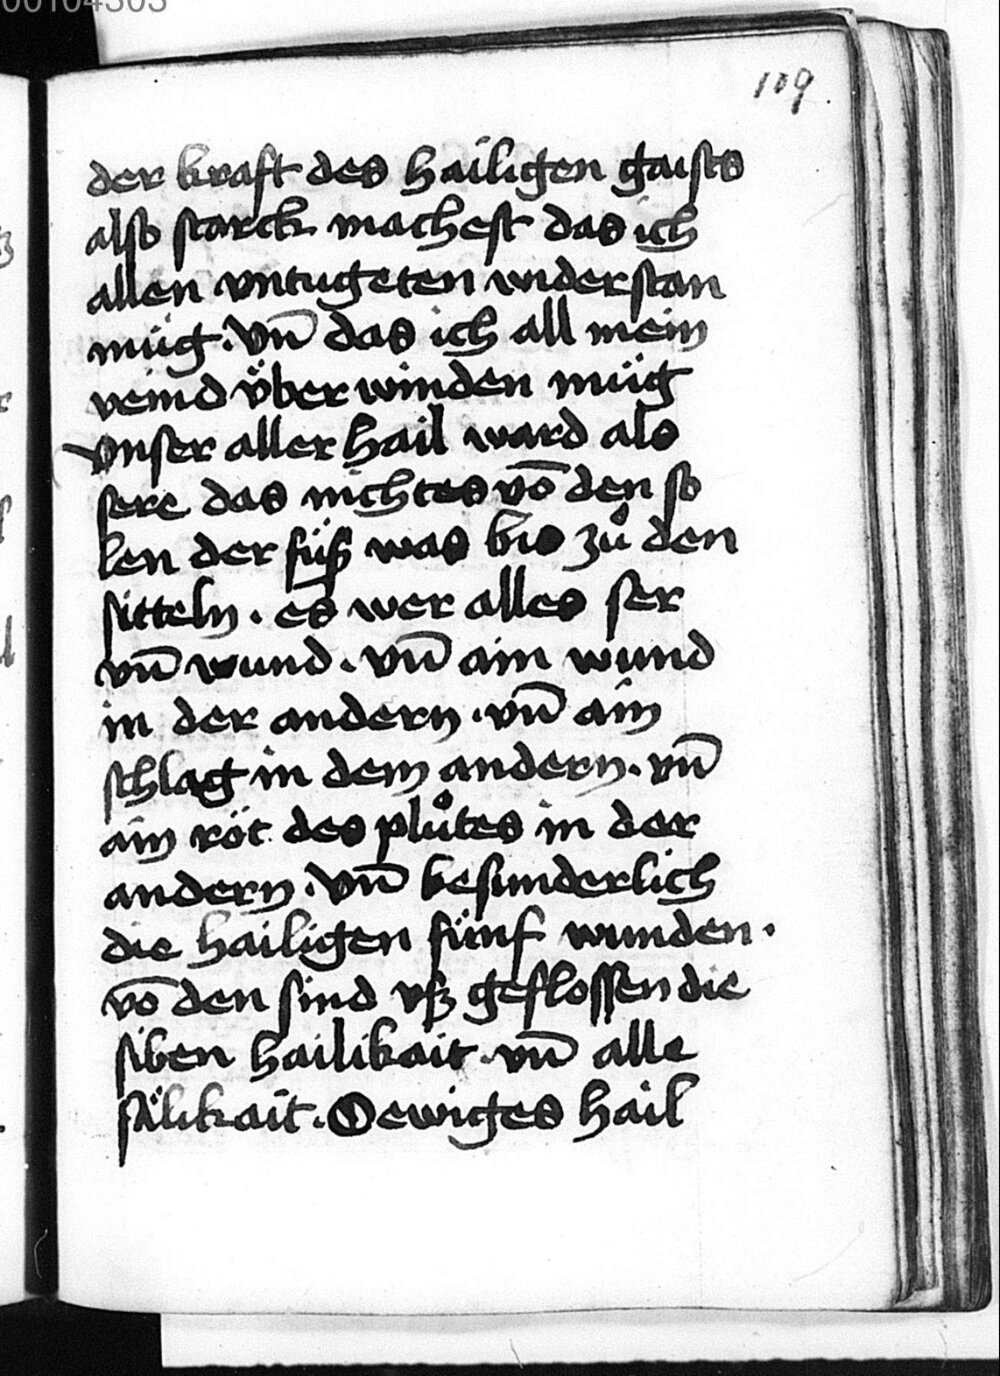 109
der kraft des hailigen gaists
also starck machest das ich
allen vntugeten widerstan
müg. Vn̄ das ich all mein
veind v̈ber winden müg
Vnser aller hail ward als
sere das nichtes vō den so
len der füß was bis zů den
sitteln. es wer alles ser
vn̄ wund. vn̄ ain wund
in der andern. vn̄ ain
schlag in dem andern. vn̄
ain röt des plůtes in der
andern. Vn̄ besunderlich
die hailigen fünf wunden.
vō den sind vß geflossen die
siben hailikait. vn̄ alle
sälikait. O ewiges hail